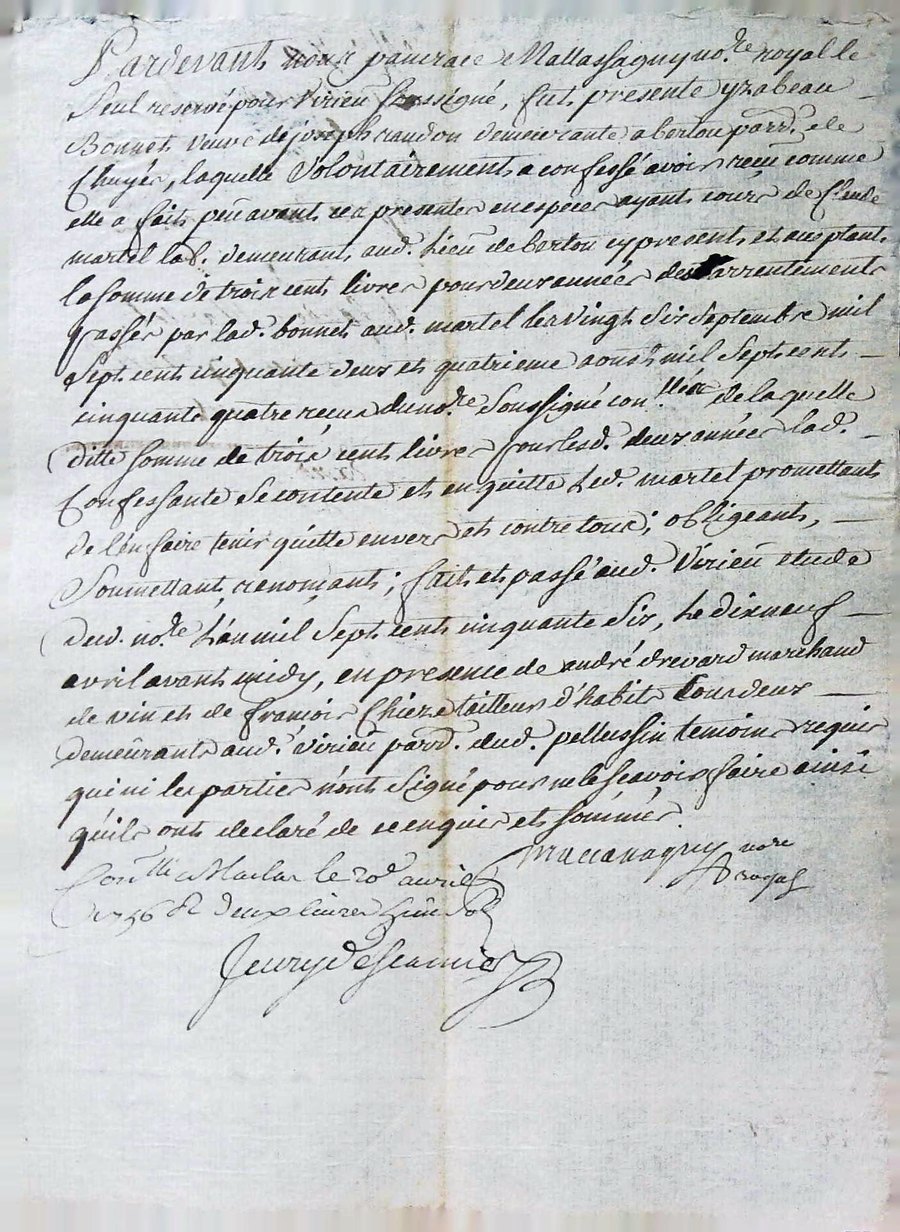 Pardevant nous pancrace Mattassagny no.re royal le
Seul reservé pour Virieu soussigné, fut presente yzabeau
Bonnet veuve de joseph randon demeurante a berton parr.e de
Chuyer, laquelle Volontairement a confessé avoir reçu comme
elle a fait peu avant ces presentes en especes ayant cours de Claude
martel lab.r demeurant aud. Lieu de berton cy present et acceptant
la somme de trois cent livres pour deux années des arrentements
passés par lad. bonnet aud. martel les vingt Six Septembre mil
Sept cent cinquante deux et quatrieme aoust mil Sept cent
cinquante quatre reçus du no.re Soussigné con.llés de laquelle
ditte somme de trois cent livres pour lesd. deux années lad.
Confessante se contente et en quitte Led. martel promettant
de l'en faire tenir quitte envers et contre tous; obligeant,
Soumettant, renonçant; fait et passé aud. Virieu etude
dud. no.re L'an mil Sept cent cinquante Six, Le dixneuf
avril avant midy, en presence de andré drevard marchand
de vin et de françois Chieze tailleur d'habits tous deux
demeurants aud. Virieu parr.e dud. pellussin temoins requis
qui ni les parties n'ont Signé pour ne le scavoir faire ainsi
qu'ils ont declaré de ce enquis et sommés.
Mattassagny no.re
royal
Con.llé a Maclas le 20e avril
1756 R deux livres huit Sols